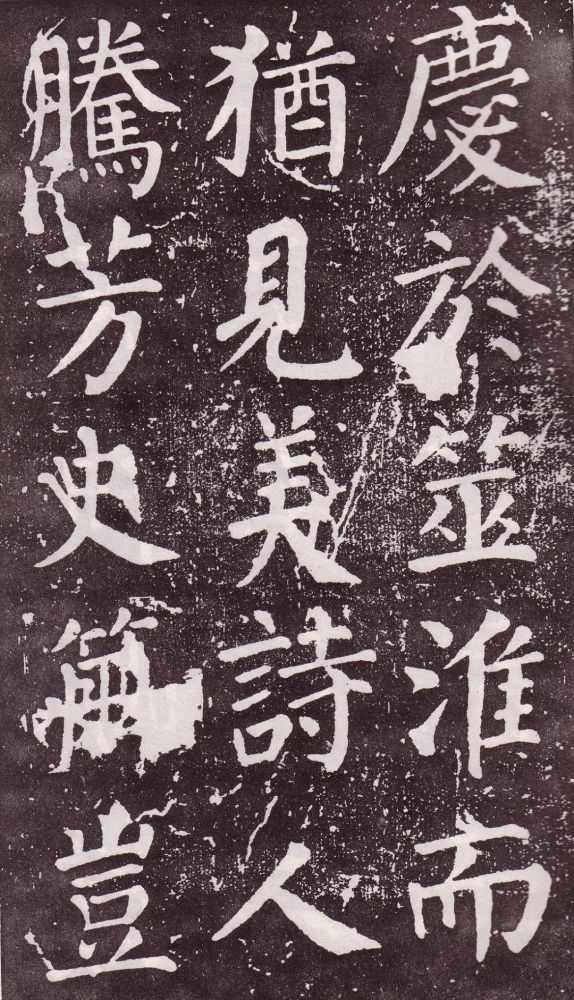 慶於筮淮而
猶見美詩人
騰芳史豈